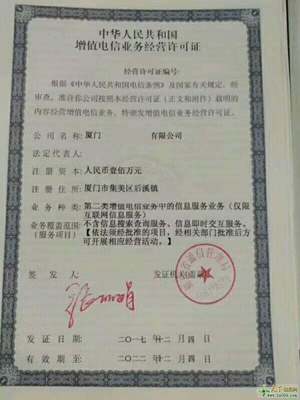 中华人民共和国
增值电信业务经营许可证
经营许可证编号:
根据《中华人民共和国电信条例》及国家有关规定,经
审查,准许你公司按照本经营许可证(正文和附件)载明的
内容经营增值电信业务。特颁发增值电信业务经营许可证。
公司名称: 厦门 有限公司
法定代表人:
注册资本: 人民币壹佰万元
注册住所: 厦门市集美区后溪镇
业务种类: 第二类增值电信业务中的信息服务业务(仅限
互联网信息服务)
业务覆盖范围: 不含信息搜索查询服务、信息即时交互服务。
(服务项目) 【依法须经批准的项目,经相关部门批准后方
可开展相应经营活动。】
签发人: 发证机关
发证日期: 二〇一七年 十二月 四日
有效期至: 二〇二二年 十二月 四日